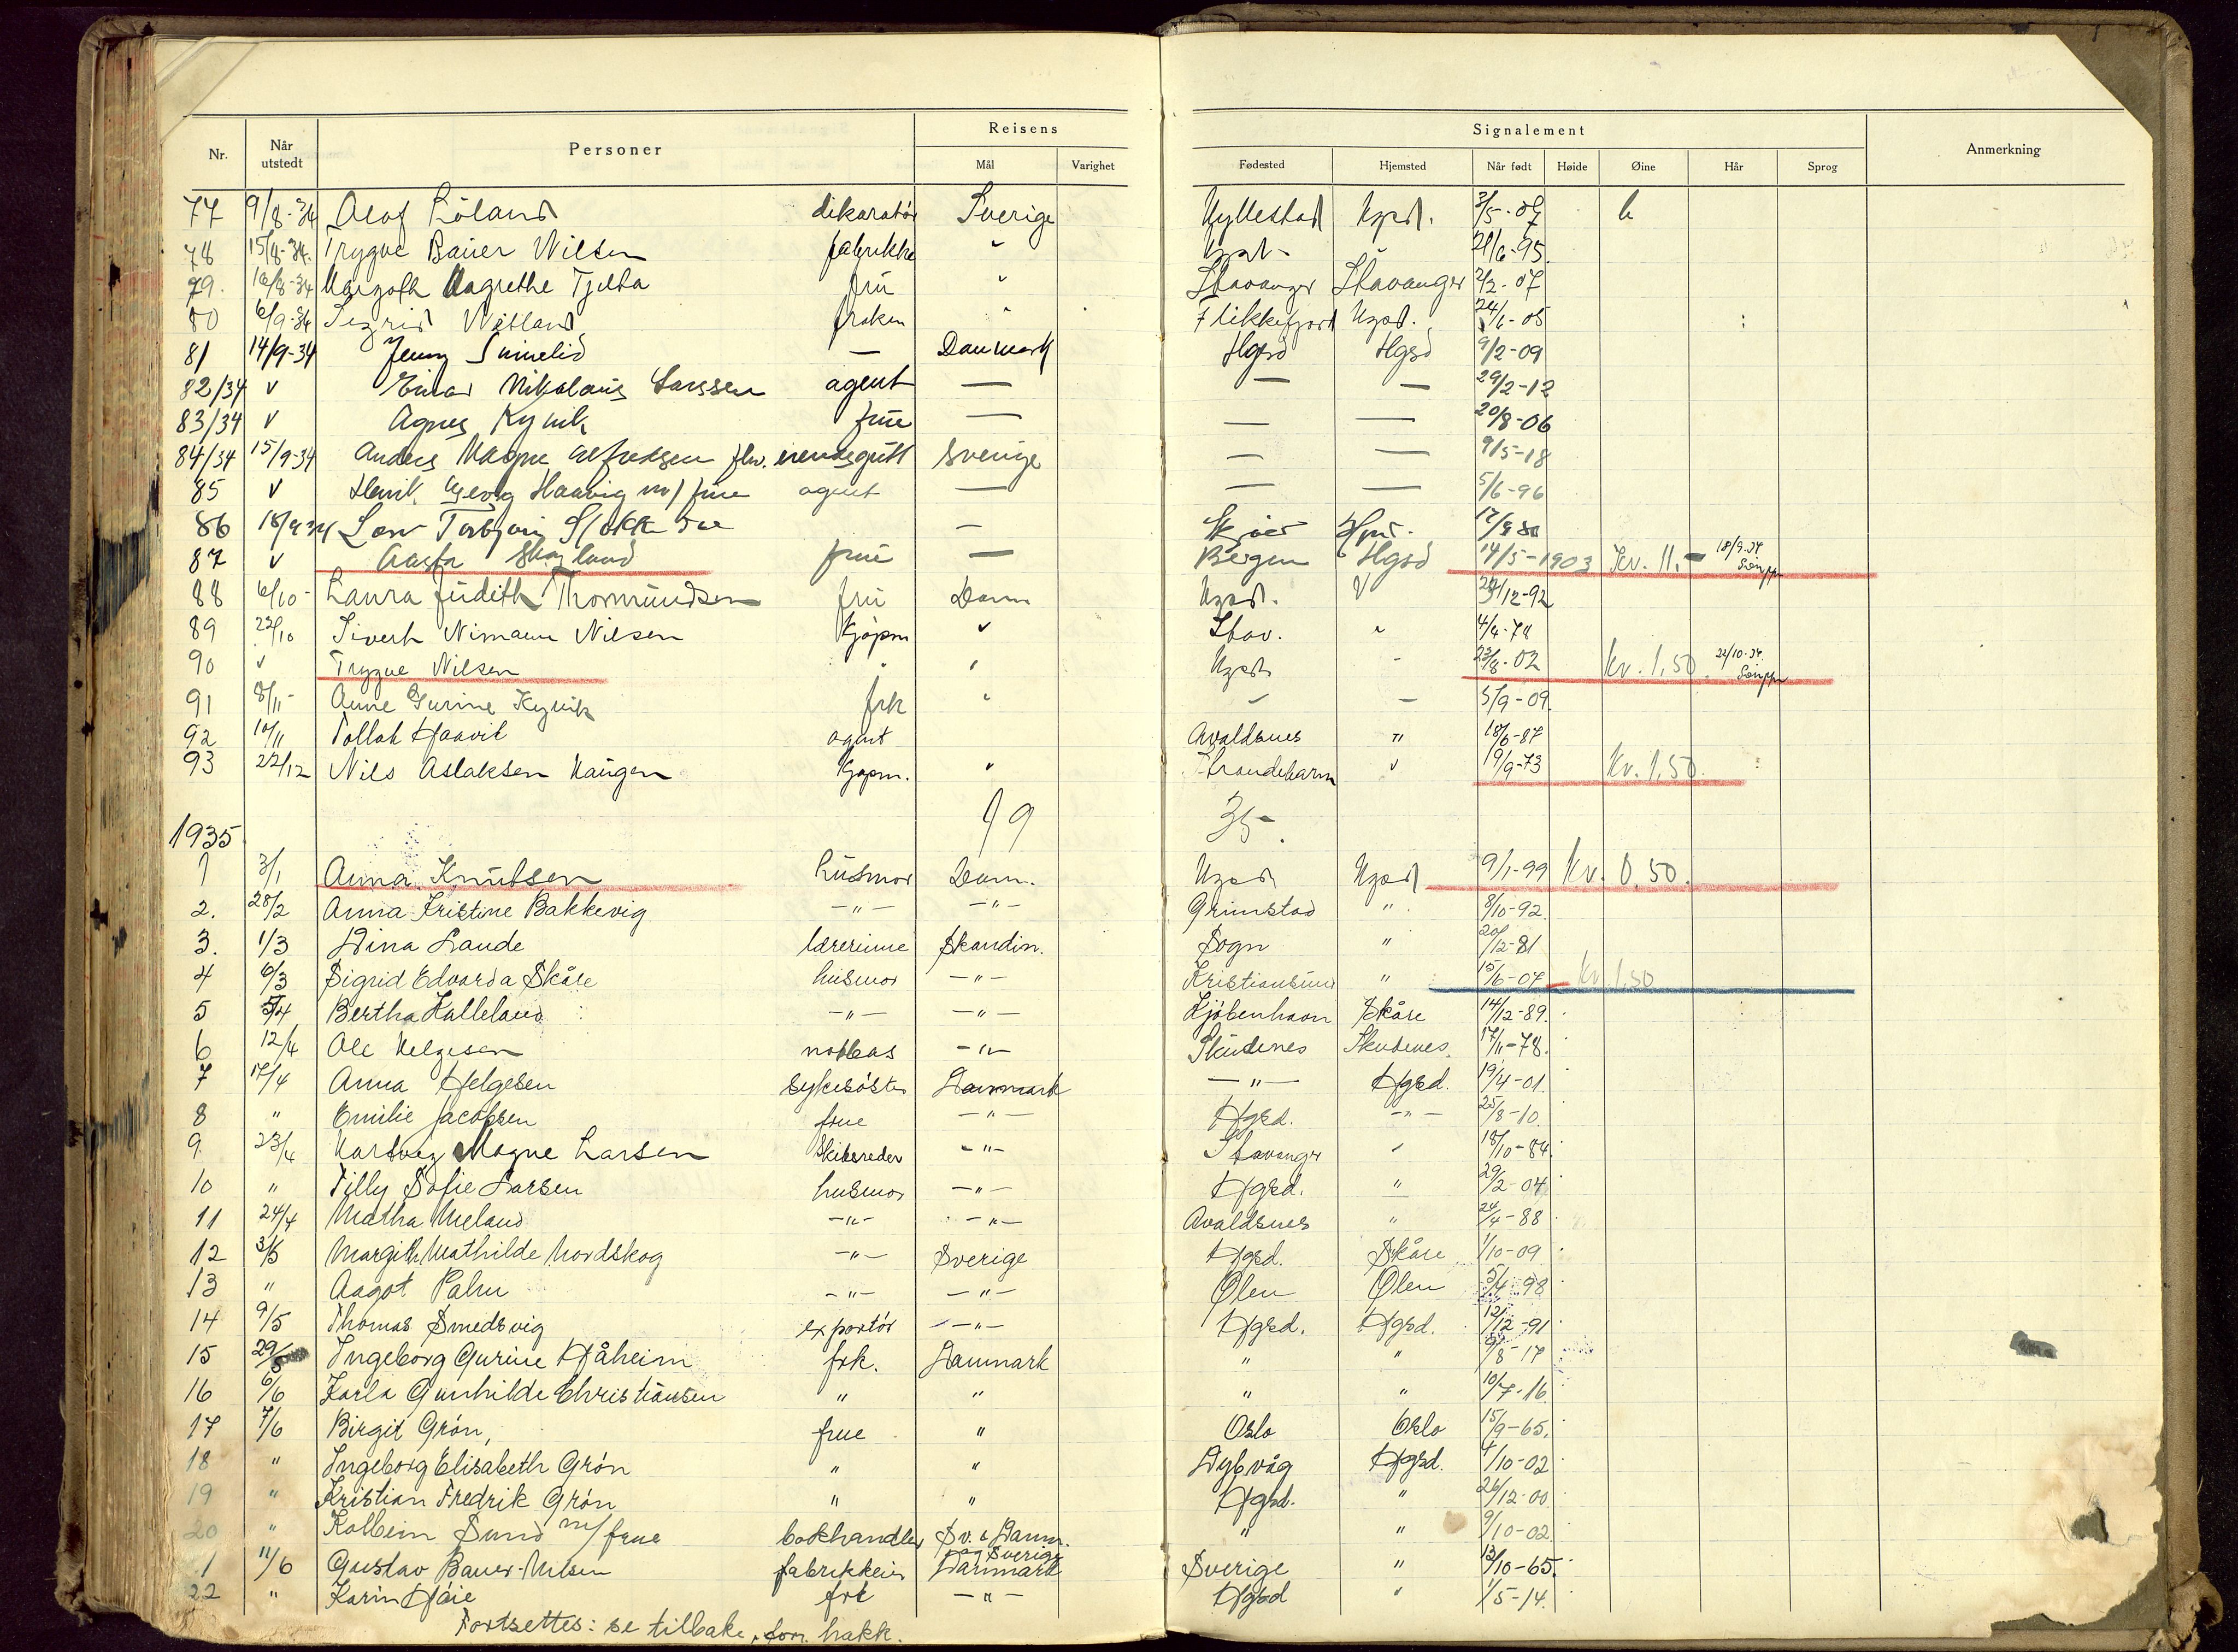 Nr. Når utstedt Personer Reisens Mål Varighet Signalement Fødested Hjemsted Når født Høide Øine Hår Sprog Anmerkning
77 9/8-34 Olaf Löland dikoratör Sverige Hyllestad Hgsd. 3/5-07
78 15/8-34. Trygve Bauer Nilsen fabrikke " Hgsd - 21/6-95.
79. 16/8-34 Margoth Magrethe Tjelta fru " Stavanger Stavanger 2/2-07
80 6/9-34 Sigrid Vetland fröken " Flikkefjord Hgsd. 24/6-05
81 14/9-34 Jenny Simelid — Danmark Hgsd Hgsd 9/2-09
82/34 v Einar Nikolaus Larssen agent — — — 29/2-12
83/34 v Agnes Kyvik frue — — — 20/8-06
84/34 15/9-34 Anders Magne Alfredsen fhv. erendsgutt Sverige — — 9/5-18
85 v Henrik Georg Haavig m/ frue agent — — — 5/6-96
86 18/9 34 — Hgsd.
87 v Aasta Skogland frue — Bergen Hgsd 14/5-1903 Kr. 11.- 18/9.34
88 6/10- Laura Judith Thormundsen fru Danm Hgsd. V 29/12-92
89 22/10 Sivert Nimann Nilsen Kjöpm v Stav. " 4/4-78
90 v Trygve Nilsen " " Hgsd - 23/8-02 Kr. 1,50. 22/10.34.
91 8/11- Anne Gurine Kyvik frk " - - 5/9-09.
92 10/11 Tollak Haavik agent Avaldsnes " 18/6-87
93 22/12 Nils Aslaksen Haugen Kjöpm. " Strandebarm v 19/9-73 Kr. 1,50.
19 35-
1935
1 3/1 Anna Knutsen husmor Danm. Hgsd Hgsd 9/1-99 Kr. 0.50.
2. 28/2 Anna Kristine Bakkevig -"- -"- Grimstad " 8/10-92.
3. 1/3 Dina Lande lærerinne Skandin. Sogn " 20/12-81
4 6/3 Sigrid Edvarda Skåre husmor -"- Kristiansund " 15/6-07 Kr 1,50
5 5/4 Bertha Halleland -"- -"- Kjöbenhavn Skåre 14/12-89.
6 12/4 Ole Helgesen notbas -"- Skudenes Skudenes. 17/11-78.
7 17/4 Anna Helgesen sykesöster Danmark -"- Hgsd. 19/4-01.
8 " Emilie Jacobsen frue -"- Hgsd. -"- 25/8-10.
9. 23/4 Hartvig Magne Larsen Skibsreder -"- Stavanger " 18/10-84.
10 " Tilly Sofie Larsen husmor -"- Hgsd. " 29/2-04
11 24/4 Matha Meland -"- -"- Avaldsnes " 24/4-88
12 3/5 Margith Mathilde Nordskog -"- Sverige Hgsd. Skåre 1/10-09
13 " Aagot Palm -"- -"- Ølen Ølen 5/4-98
14 9/5 Thomas Smedsvig exportör -"- Hgsd. Hgsd. 12/12-91
15 29/5 Ingeborg Gurine Håheim frk. Danmark " " /8-17
16 6/6 Karla Gunhilde Christiansen " " " " 10/7-16
17 7/6 Birgit Grön, frue " Oslo Oslo 15/9-65.
18 " Ingeborg Elisabeth Grön " " Dybvåg Hgsd. 4/10-02
19 " Kristian Fredrik Grön " " Hgsd. " 26/12-00
20 " Kolbein Sund m/ frue bokhandler Sv. & Danm. " " 9/10-02
1 11/6 Gustav Bauer-Nilsen fabrikkeier Danmark og Sverige Sverige " 13/10-65.
22 " Karin Høie frk -"- Hgsd " 1/5-14.
Fortsettes: se tilbake, forr. hakk.